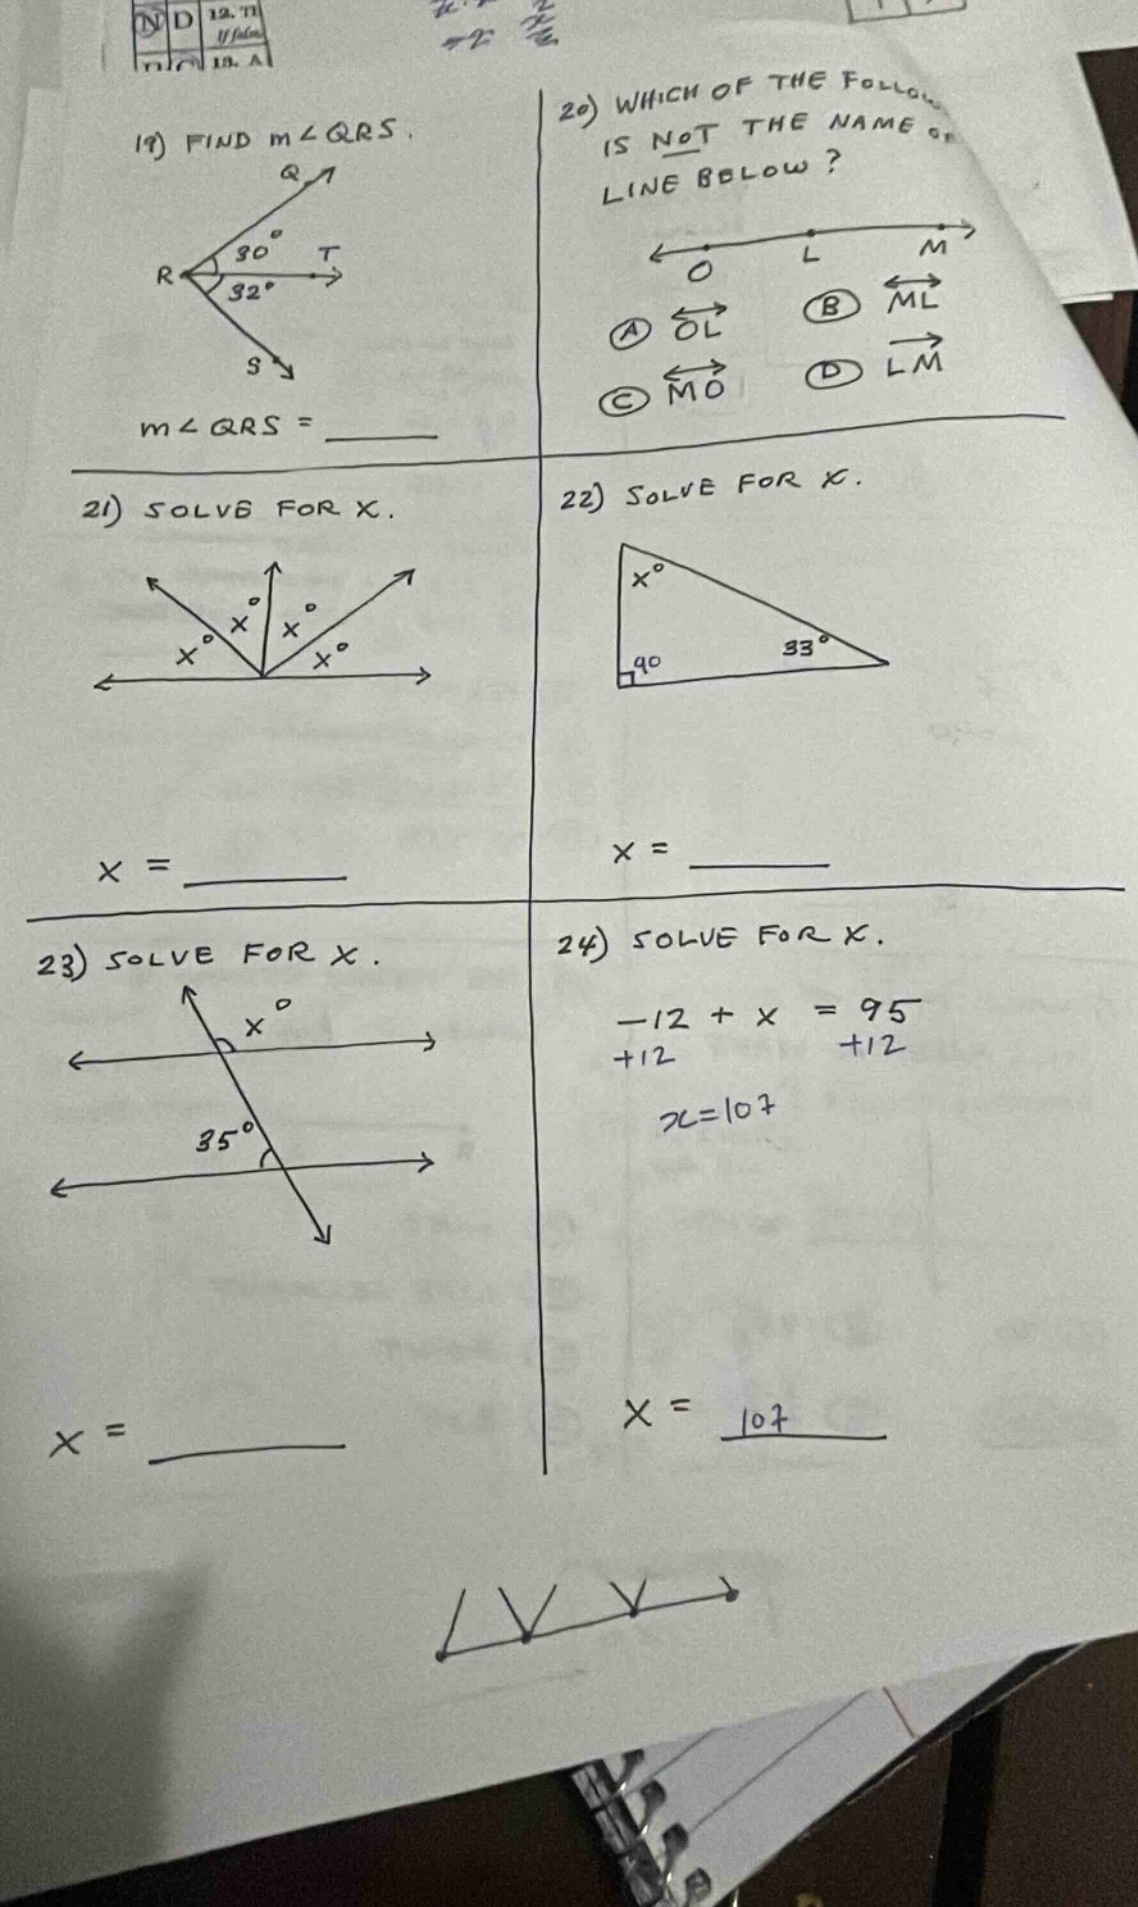 N D 12. TI
If false
13. A
19) FIND m∠QRS.
Q
30°
T
R
32°
S
m∠QRS = ____
20) WHICH OF THE
IS NOT THE NAME
LINE BELOW?
O L M
Ⓐ OL Ⓑ ML
Ⓒ MO Ⓓ LM
21) SOLVE FOR X.
x° x° x° x°
X = ____
22) SOLVE FOR X.
x°
90 33°
X = ____
23) SOLVE FOR X.
x°
35°
X = ____
24) SOLVE FOR X.
-12 + x = 95
+12 +12
x=107
X = 107